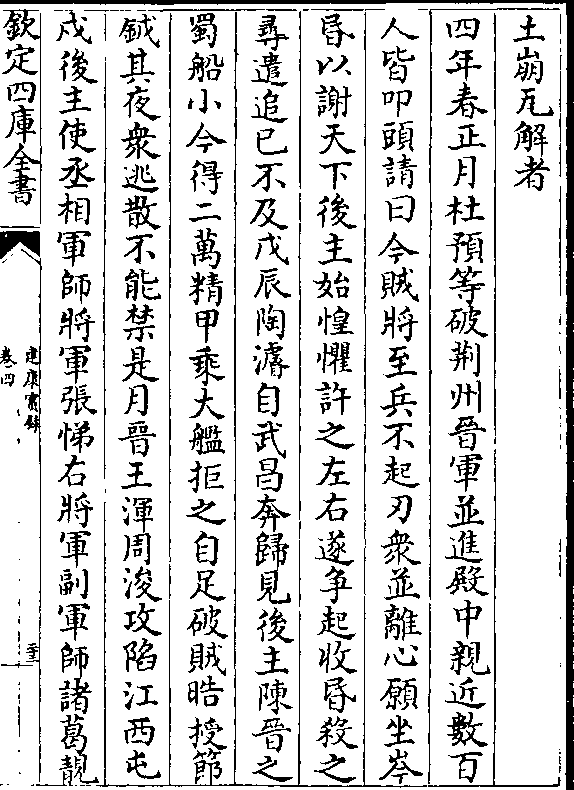 土崩瓦解者
四年春正月杜預等破荆州晉軍並進殿中親近數百
人皆叩頭請曰今賊將至兵不起刃衆並離心願坐岑
昬以謝天下後主始惶懼許之左右遂争起收昬殺之
尋遣追已不及戊辰陶濬自武昌奔歸見後主陳晉之
蜀船小今得二萬精甲乘大艦拒之自足破賊晧授節
鉞其夜衆逃散不能禁是月晉王渾周浚攻陷江西屯
戍後主使丞相軍師將軍張悌右將軍副軍師諸葛靚
欽定四庫全書
建康實録
卷四